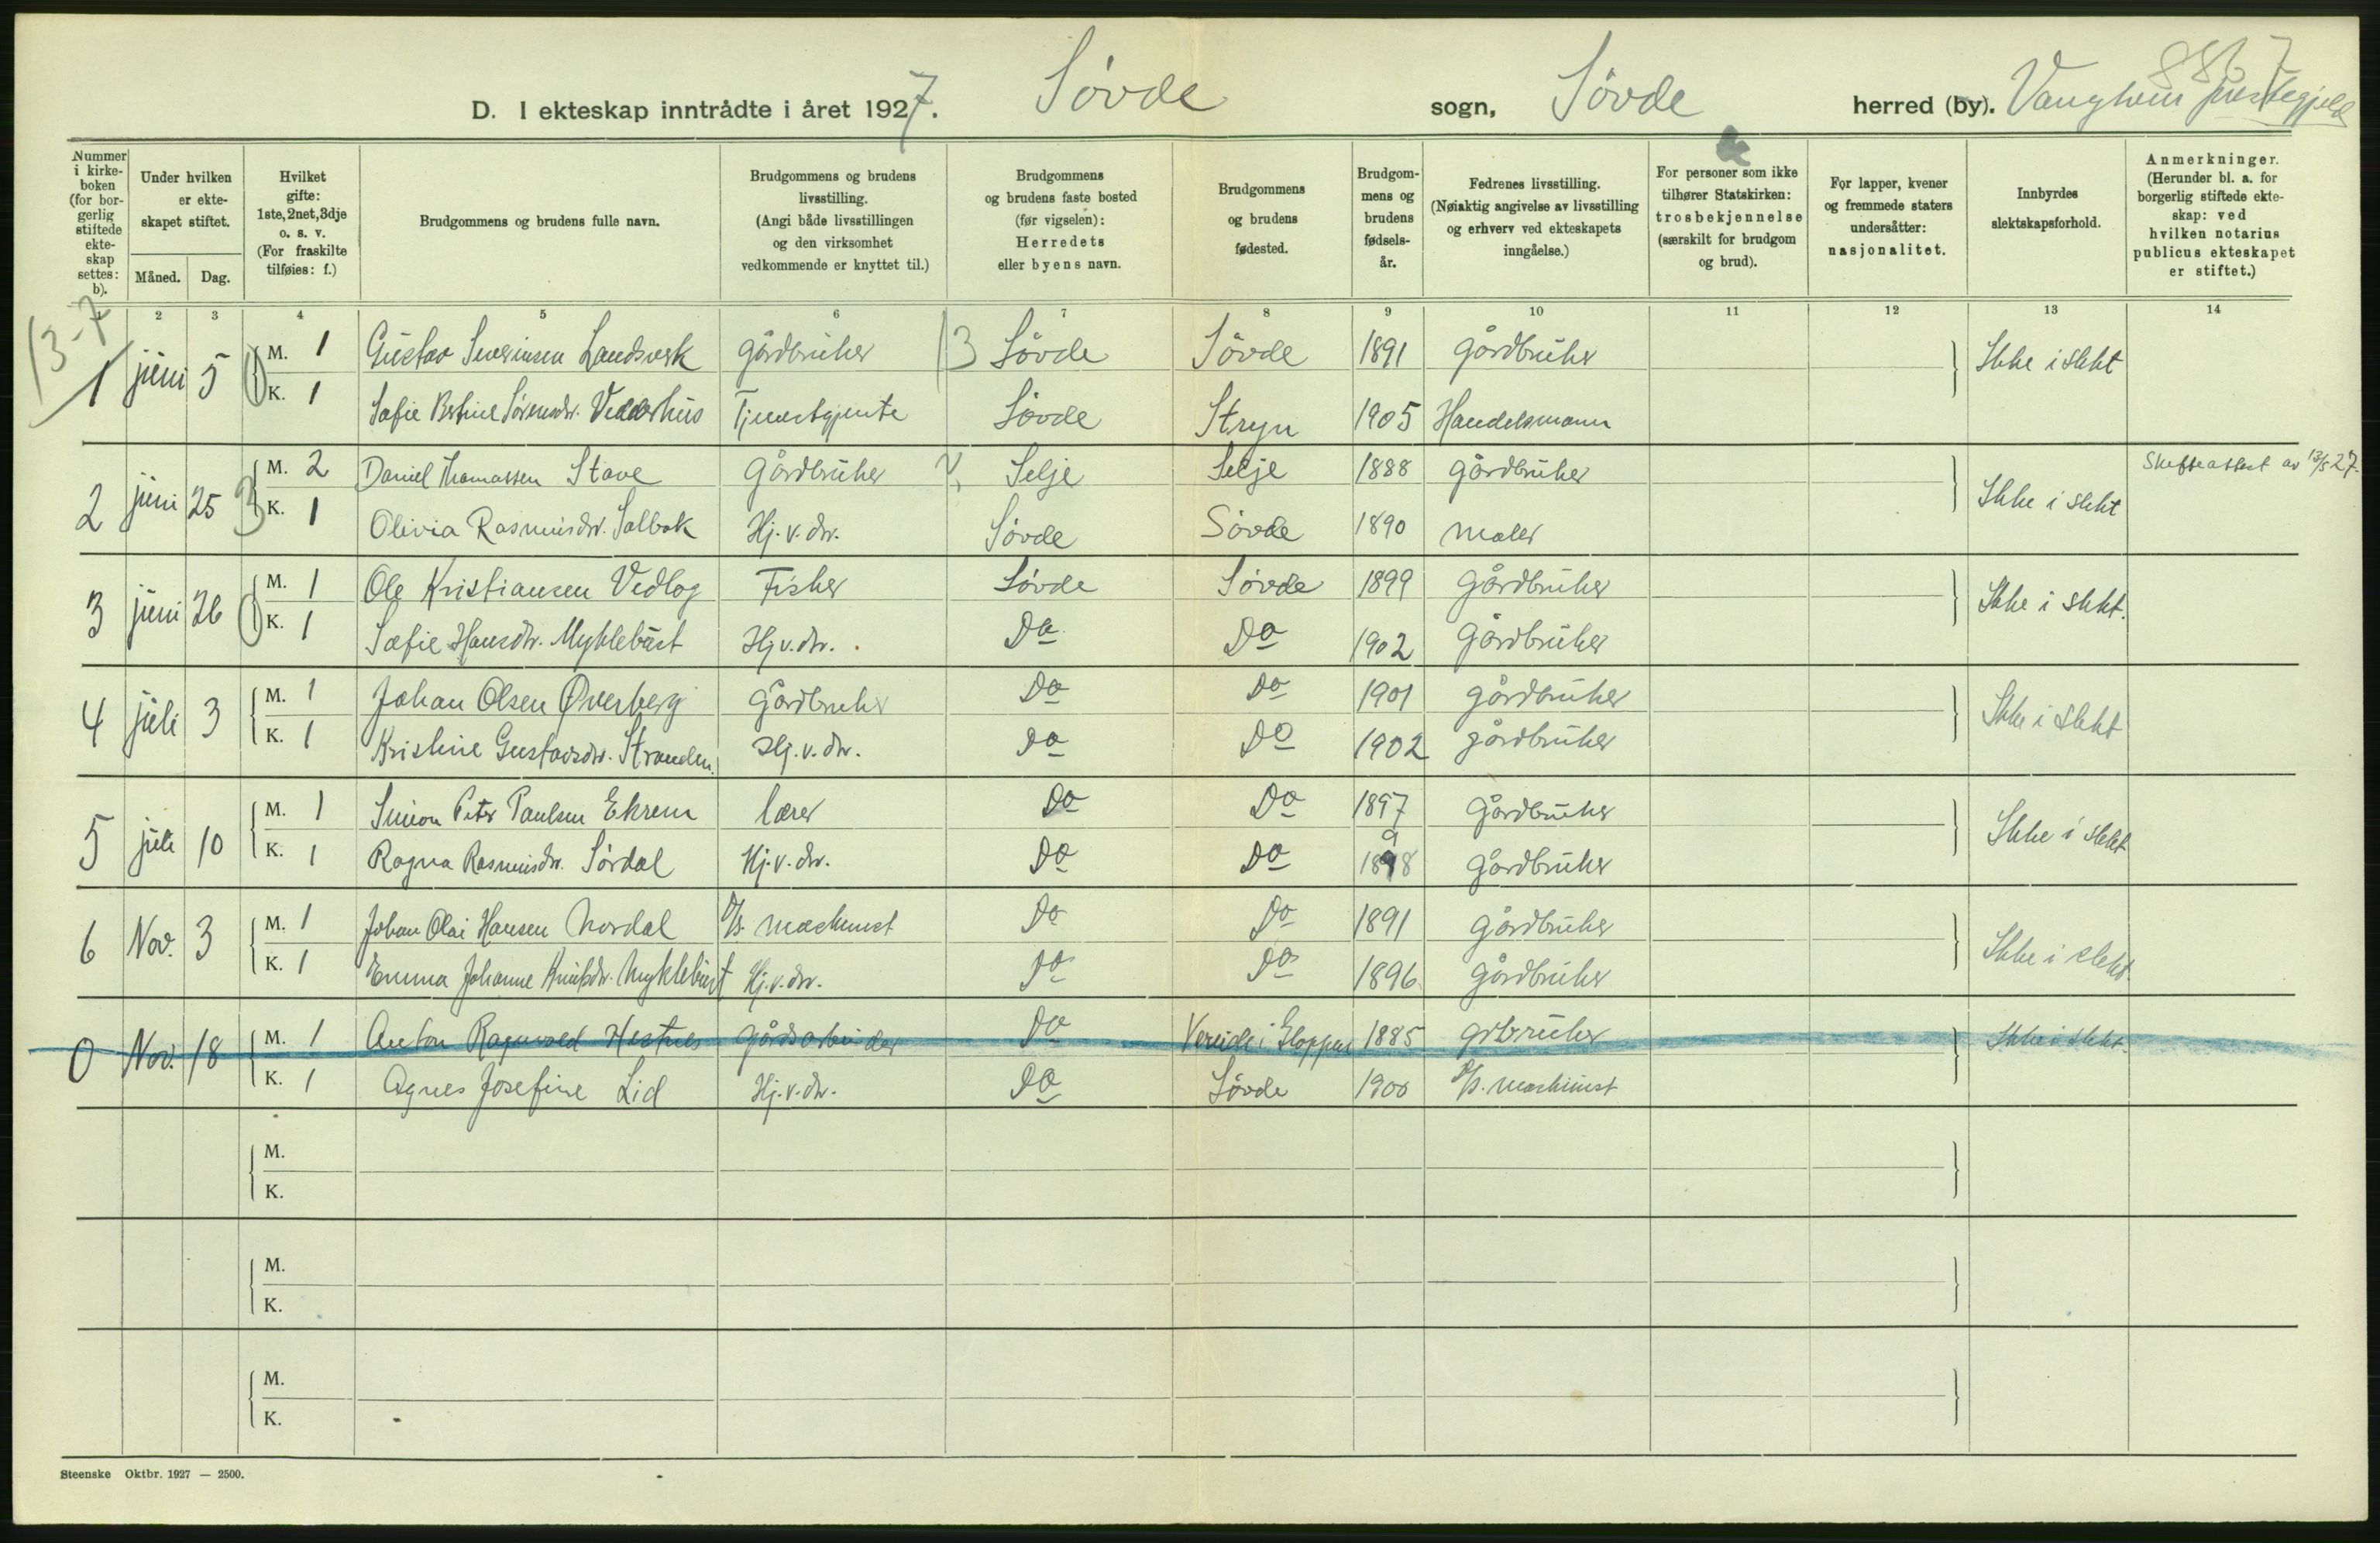 8867
D. I ekteskap inntrådte i året 1927. Søvde sogn, Søvde herred (by). Vanylven prestegjeld
Nummer i kirkeboken (for borgerlig stiftede ekteskap settes: b).
Under hvilken er ekteskapet stiftet.
Måned. Dag.
Hvilket gifte: 1ste, 2net, 3dje o. s. v. (For fraskilte tilføies: f.)
Brudgommens og brudens fulle navn.
Brudgommens og brudens livsstilling. (Angi både livsstillingen og den virksomhet vedkommende er knyttet til.)
Brudgommens og brudens faste bosted (før vigselen): Herredets eller byens navn.
Brudgommens og brudens fødested.
Brudgommens og brudens fødselsår.
Fedrenes livsstilling. (Nøiaktig angivelse av livsstilling og erhverv ved ekteskapets inngåelse.)
For personer som ikke tilhører Statskirken: trosbekjennelse (særskilt for brudgom og brud).
For lapper, kvener og fremmede staters undersåtter: nasjonalitet.
Innbyrdes slektskapsforhold.
Anmerkninger. (Herunder bl. a. for borgerlig stiftede ekteskap: ved hvilken notarius publicus ekteskapet er stiftet.)
1 2 3 4 5 6 7 8 9 10 11 12 13 14
13-7
1 juni 5 M. 1 Gustav Severinsen Landsverk gårdbruker 13 Søvde Søvde 1891 gårdbruker Ikke i slekt
K. 1 Sofie Bertine Sørensdr. Vedderhus Tjenestgjente Søvde Stryn 1905 Handelsmann
2 juni 25 3 M. 2 Daniel Thomassen Stave Gårdbruker Selje Selje 1888 gårdbruker Ikke i slekt Skifteattest av 13/5 27.
K. 1 Olivia Rasmusdr. Solbak Hj. v. dr. Søvde Søvde 1890 maler
3 juni 26 M. 1 Ole Kristiansen Vedlog Fisker Søvde Søvde 1899 gårdbruker Ikke i slekt.
K. 1 Sofie Hansdr. Myklebust Hj. v. dr. Do Do 1902 gårdbruker
4 juli 3 M. 1 Johan Olsen Øverberg Gårdbruker Do Do 1901 gårdbruker Ikke i slekt
K. 1 Kristine Gustavsdr. Stranden. Hj. v. dr. Do Do 1902 gårdbruker
5 juli 10 M. 1 Simon Peter Paulsen Ekrem lærer Do Do 1897 Gårdbruker Ikke i slekt
K. 1 Ragna Rasmusdr. Sørdal Hj. v. dr. Do Do 1898 gårdbruker
6 Nov. 3 M. 1 Johan Olai Hansen Nordal D/s. maskinist Do Do 1891 gårdbruker Ikke i slekt.
K. 1 Emma Johanne Knutsdr. Myklebust Hj. v. dr. Do Do 1896 gårdbruker
0 Nov. 18 M. 1 Anton Ragnvald Hestnes Gårdsarbeider Do Vereide i Gloppen 1885 grbruker Ikke i slekt.
K. 1 Agnes Josefine Lid Hj. v. dr. Do Søvde 1900 D/s. maskinist
M.
K.
M.
K.
M.
K.
Steenske Oktbr. 1927 — 2500.